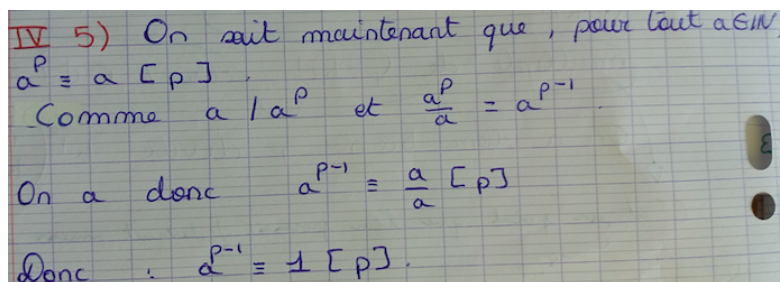 IV 5) On sait maintenant que, pour tout a∈ℕ,
a^p ≡ a [p].
Comme a | a^p et a^p/a = a^(p-1).
On a donc a^(p-1) ≡ a/a [p]
Donc : a^(p-1) ≡ 1 [p].